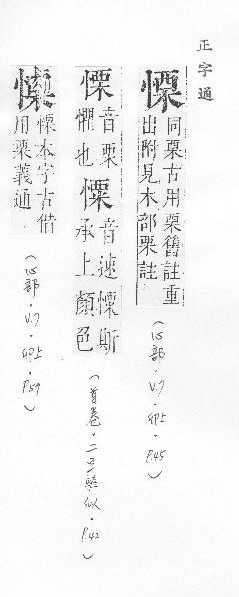 正字通
慄
同㮚古用栗舊註重
出附見木部栗註
(心部．V.7．卯上．P.45)
慄音栗
懼也
慄音速慄斯
承上顏色
(首卷．二字相似．P.42)
慄本字古借
用栗義通
(心部．V.7．卯上．P.59)